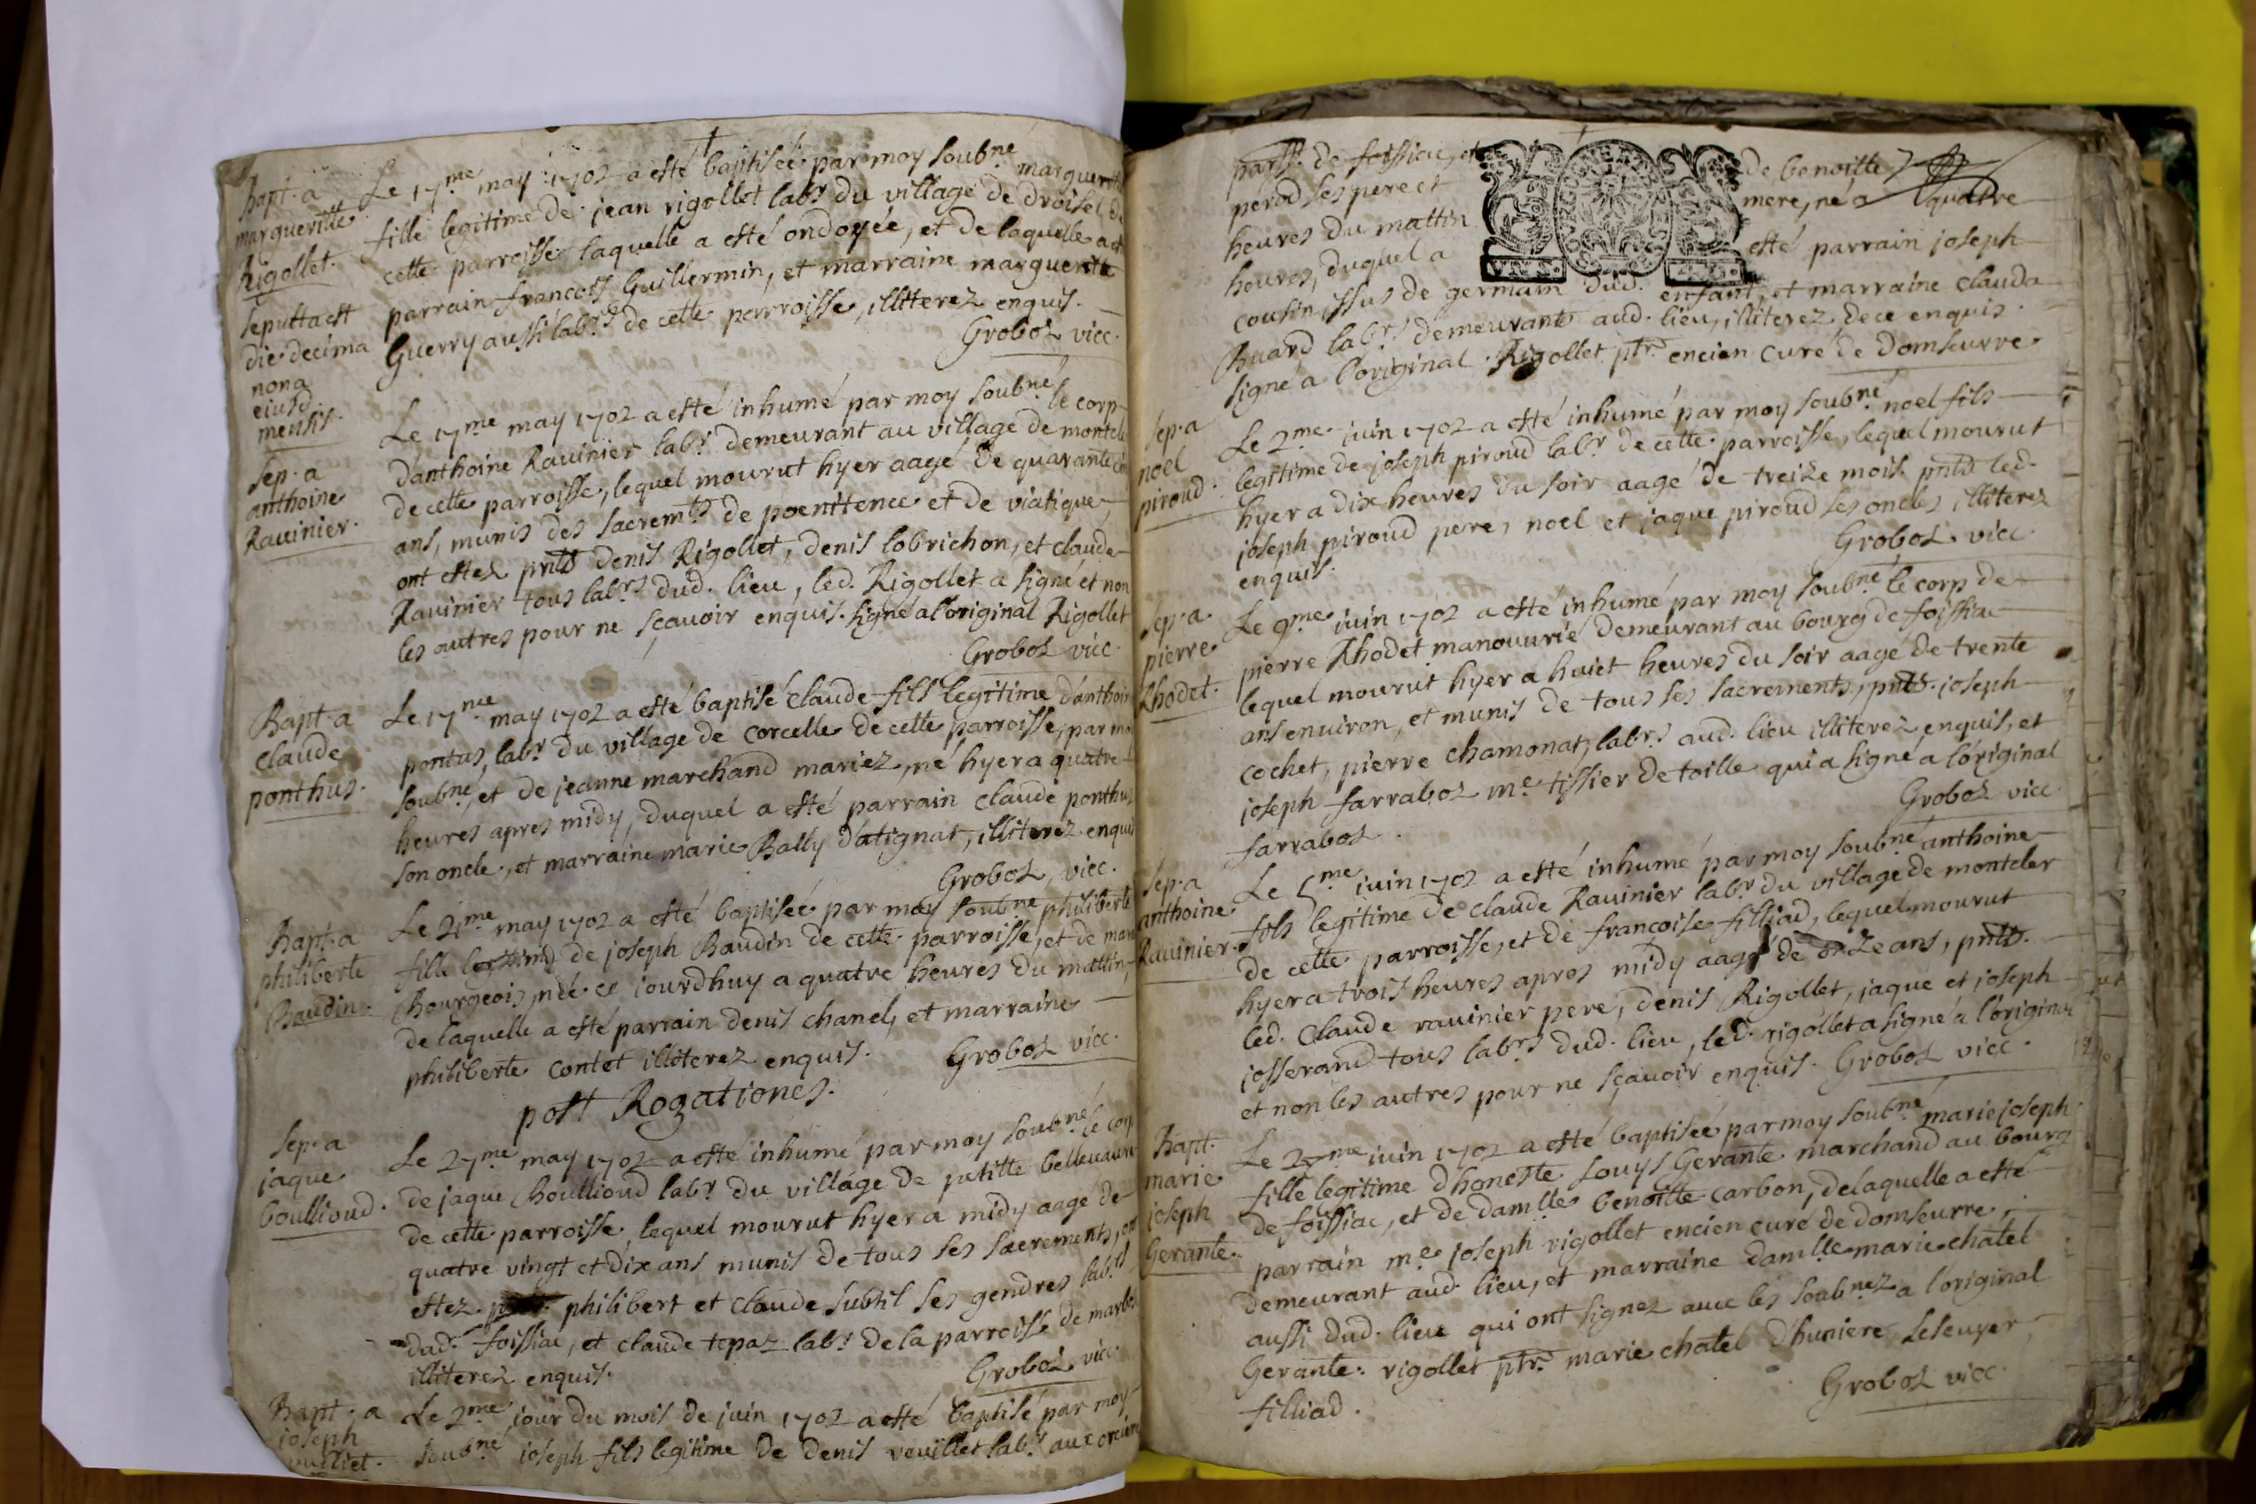 Bapt. a
margueritte
Rigollet.
sepulta est
die decima
nona
eiusd.
mensis.
Le 17me may 1702 a esté baptisée par moy soubné marguerit
fille legitime de jean rigollet labr du village de droisel de
cette parroisse laquelle a esté ondoyée, et de laquelle a
parrain francois Guillermin, et marraine marguerite
Guerry aussi labrs de cette parroisse, illiterez enquis.
Groboz vicc.
Sep. a
anthoine
Rauinier.
Le 17me may 1702 a esté inhumé par moy soubné le corp
d'anthoine Rauinier labr demeurant au village de montcle
de cette parroisse, lequel mourut hyer aagé de quarante
ans, munis des sacremts de poenitence et de viatique,
ont estez pnts denis Rigollet, denis lobrichon, et claude
Rauinier tous labrs dud. lieu, led. Rigollet a signé et non
les autres pour ne sçauoir enquis. signé a l'original Rigollet
Groboz vicc.
Bapt. a
claude
ponthus.
Le 17me may 1702 a esté baptisé claude fils legitime d'anthoin
pontus, labr du village de corcelle de cette parroisse, par mo
soubné, et de jeanne marchand mariez, né hyer a quatre
heures apres midy, duquel a esté parrain claude ponthus
son oncle, et marraine marie Bally d'atignat, illiterez enquis
Groboz, vicc.
Bapt. a
philiberte
Baudin.
Le 21me may 1702 a esté baptisée par moy soubné philiberte
fille legitime de joseph Baudin de cette parroisse, et de mar
Bourgeois, née ce jourdhuy a quatre heures du mattin,
de laquelle a esté parrain denis chanel, et marraine
philiberte contet illiterez enquis.
Groboz vicc.
post Rogationes.
Sep. a
jaque
boullioud.
Le 27me may 1702 a esté inhumé par moy soubné le corp
de jaque Boullioud labr du village de petitte belleuaure
de cette parroisse, lequel mourut hyer a midy aagé de
quatre vingt et dix ans munis de tous ses sacrements, ont
estez philibert et claude subtil ses gendres labrs
dud. foissiac, et claude tepaz labr de la parroisse de marbo
illiterez enquis.
Groboz vicc.
Bapt. a
joseph
Le 2me jour du mois de juin 1702 a esté baptisé par moy
soubné joseph fils legitime de denis veuillet labr aux
parsse de foissiac, et de benoitte
perod ses pere et mere, né a quatre
heures du mattin
heures, duquel a esté parrain joseph
cousin issus de germain dud. enfant, et marraine clauda
Buard labrs demeurants aud. lieu, illiterez de ce enquis.
signé a l'original Rigollet ptre encien curé de domseurre
Sep. a
noel
piroud.
Le 2me juin 1702 a esté inhumé par moy soubné noel fils
legitime de joseph piroud labr de cette parroisse, lequel mourut
hyer a dix heures du soir aagé de treize mois pnts led.
joseph piroud pere, noel et jaque piroud ses oncles illiterez
enquis.
Groboz. vicc.
Sep. a
pierre
Rhodet.
Le 9me juin 1702 a esté inhumé par moy soubné le corp de
pierre Rhodet manouurié demeurant au bourg de foissiac
lequel mourut hyer a huict heures du soir aagé de trente
ans enuiron, et munis de tous ses sacrements, pnts. joseph
cochet, pierre chamonat, labrs aud. lieu illiterez enquis, et
joseph farraboz me tissier de toille qui a signé a l'original
farraboz.
Groboz vicc.
Sep. a
anthoine
Rauinier.
Le me juin 1702 a esté inhumé par moy soubné anthoine
fils legitime de claude Rauinier labr du village de montcler
de cette parroisse, et de francoise filliad, lequel mourut
hyer a trois heures apres midy aagé de onze ans, pnts.
led. claude rauinier pere, denis Rigollet, jaque et joseph
josserand tous labrs dud. lieu, led. rigollet a signé a l'original
et non les autres pour ne sçauoir enquis. Groboz vicc.
Bapt.
marie
joseph
Gerante.
Le 27me juin 1702 a esté baptisée par moy soubné marie joseph
fille legitime d'honeste Louys Gerante marchand au bourg
de foissiac, et de damlle benoitte carbon, de laquelle a esté
parrain me joseph rigollet encien curé de domseurre,
demeurant aud. lieu, et marraine damlle marie chatel
aussi dud. lieu qui ont signez auec les soubnez a l'original
Gerante. rigollet ptre marie chatel d'huniere
filliad.
Groboz vicc.